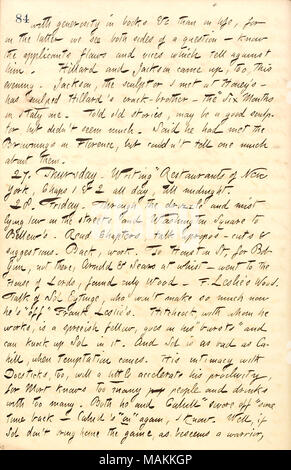 84
with generosity in books & than in life, for
in the latter we see both sides of a question — know
the applicants flaws and vices which tell against
him. Hillard and Jackson came up, too, this
evening. Jackson, the sculptor I met at Honey's —
has Hillard's — the Six Months
in Italy one. Told old stories, may be a good sculp-
tor but didn't seem much. Said he had met the
Brownings in Florence, but couldn't tell one much
about them.
27. Thursday. Writing "Restaurants of New
York, Chaps 1 & 2 all day, till midnight.
28. Friday. Through the drizzle and mist
lying low in the streets and Washington Square to
Bellew's. Read chapters, talk apropos — cuts &
suggestions. Back, work. To Houston St, for Bob
Gun, not there, Arnold & Sears at whist — went to the
House of Lords, found only Wood — F. Leslie's Wood.
Talk of Sol Eytinge, who won't make so much now
he's "off" Frank Leslie's. Hitchcock, with whom he
works, is a greeish fellow, goes in his "orots" and
can knock up Sol in it. And Sol is as bad as Ca-
hill, when temptation comes. His intimacy with
Doesticks, too, will a little accelerate his proclivity,
for Mort knows too many people and drinks
with too many. Both he and Cahill "swore off" some
time back — Cahill's "on" again, I know. Well, if
Sol don't bring home the game, as beseems a warrior,
alamy
Image ID: MAKKGP
www.alamy.com